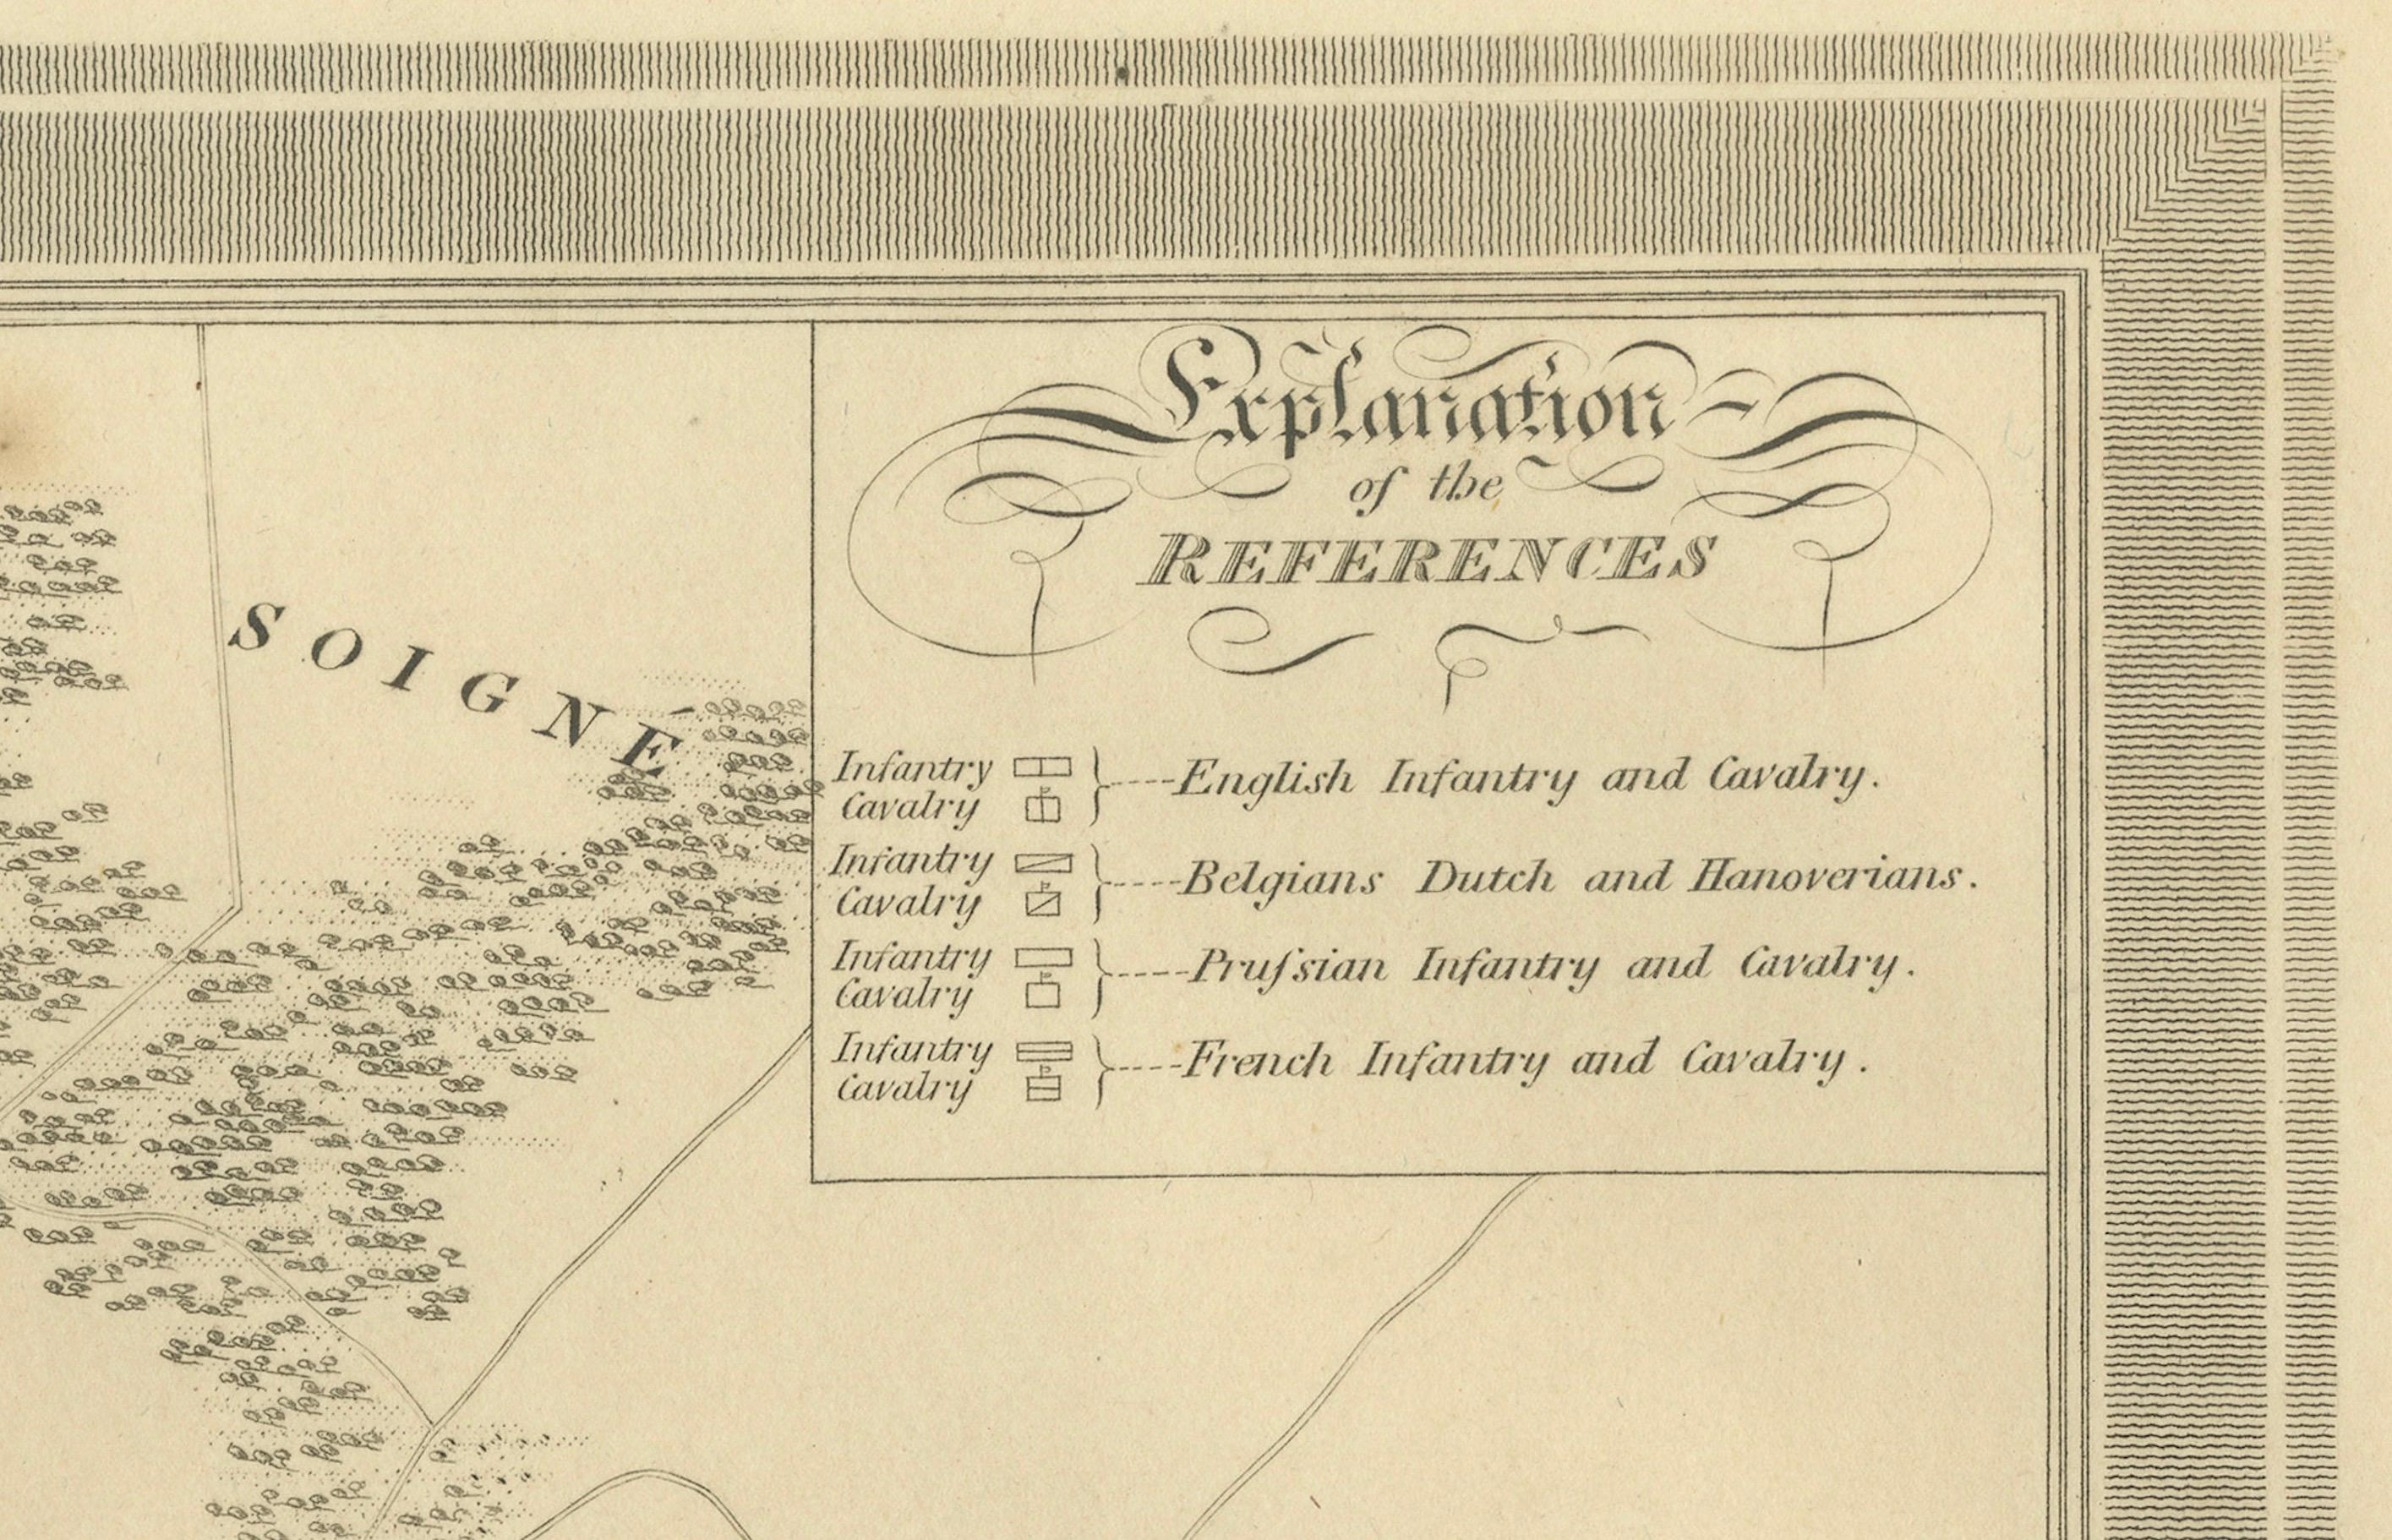 SOIGNÉ
Explanation
of the
REFERENCES
Infantry
Cavalry
English Infantry and Cavalry.
Infantry
Cavalry
Belgians Dutch and Hanoverians.
Infantry
Cavalry
Pruſsian Infantry and Cavalry.
Infantry
Cavalry
French Infantry and Cavalry.